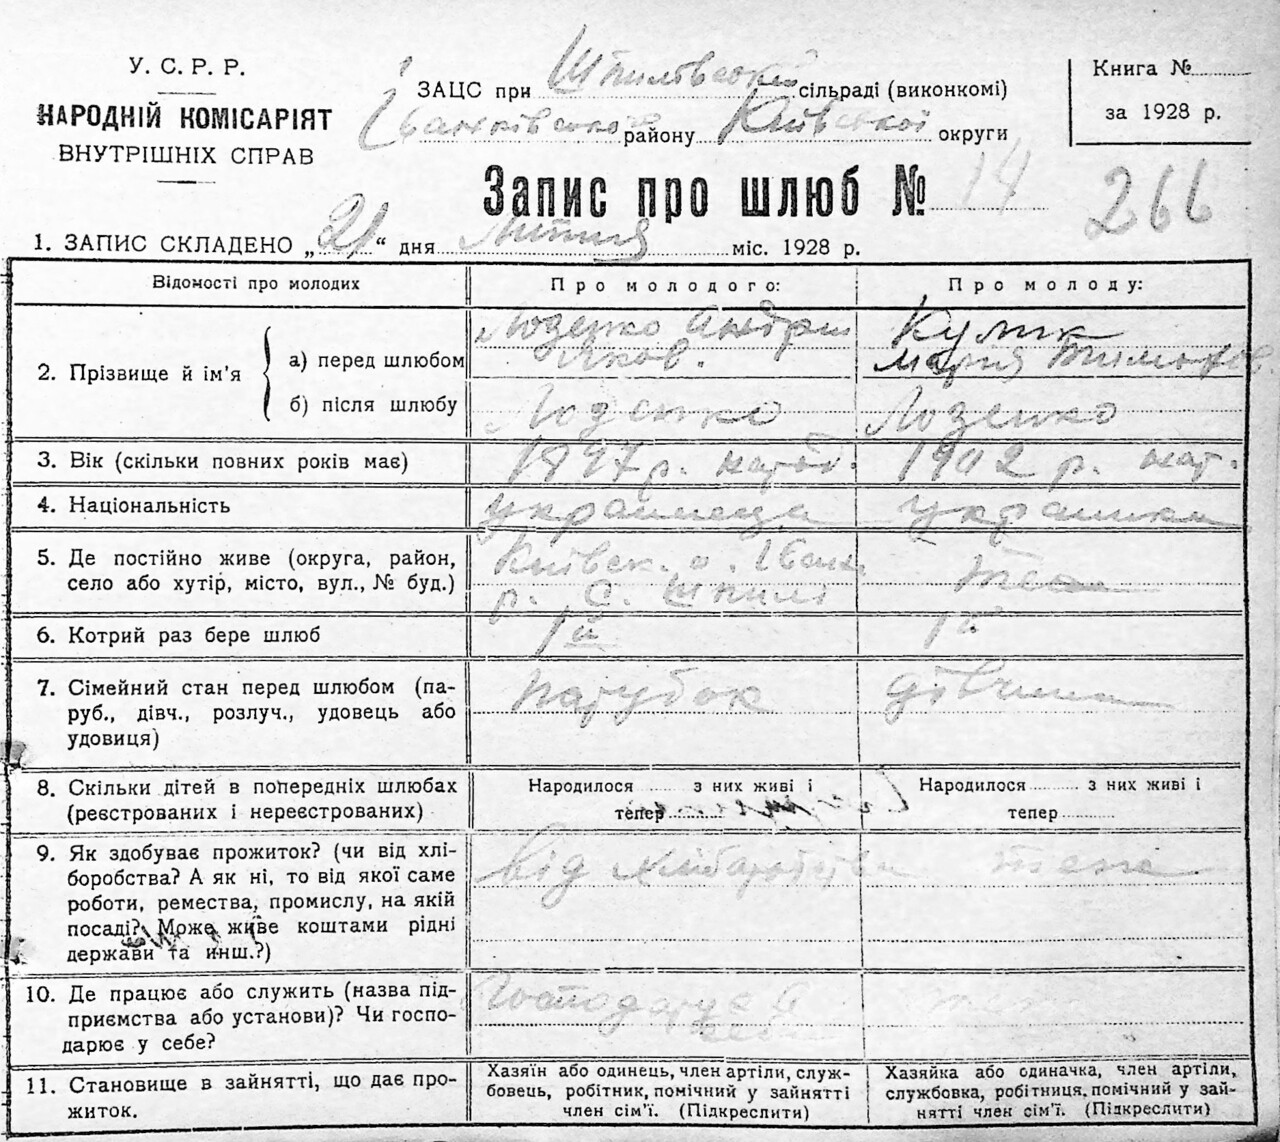 У. С. Р. Р.
НАРОДНІЙ КОМІСАРІЯТ
ВНУТРІШНІХ СПРАВ
ЗАЦС при Шпилівській сільраді (виконкомі)
Іванківського району Київської округи
Книга №
за 1928 р.
Запис про шлюб № 14
266
1. ЗАПИС СКЛАДЕНО „21“ дня міс. 1928 р.
Відомості про молодих
Про молодого:
Про молоду:
2. Прізвище й ім'я
а) перед шлюбом
Лозенко Андрій
Яков.
Кулик
Мария Тимофов.
б) після шлюбу
Лозенко
Лозенко
3. Вік (скільки повних років має)
1897 р. народ.
1902 р. нар.
4. Національність
українець
українка
5. Де постійно живе (округа, район,
село або хутір, місто, вул., № буд.)
Київск. о. Іванк.
р. С. Шпилі
теж
6. Котрий раз бере шлюб
1й
1й
7. Сімейний стан перед шлюбом (па-
руб., дівч., розлуч., удовець або
удовиця)
парубок
дівчина
8. Скільки дітей в попередніх шлюбах
(реєстрованих і нереєстрованих)
Народилося з них живі і
тепер
Народилося з них живі і
тепер
9. Як здобуває прожиток? (чи від хлі-
боробства? А як ні, то від якої саме
роботи, ремества, промислу, на якій
посаді? Може живе коштами рідні
держави та инш.?)
від хліборобства
теж
10. Де працює або служить (назва під-
приємства або установи)? Чи госпо-
дарює у себе?
Господарує в
себе
11. Становище в зайнятті, що дає про-
житок.
Хазяїн або одинець, член артіли, служ-
бовець, робітник, помічний у зайнятті
член сім'ї. (Підкреслити)
Хазяйка або одиначка, член артіли,
службовка, робітниця, помічний у зай-
нятті член сім'ї. (Підкреслити)